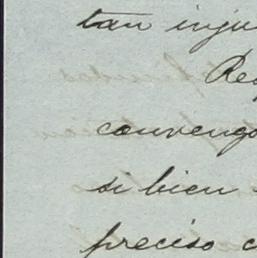 tan inju
Re
convengo
si bien
preciso c